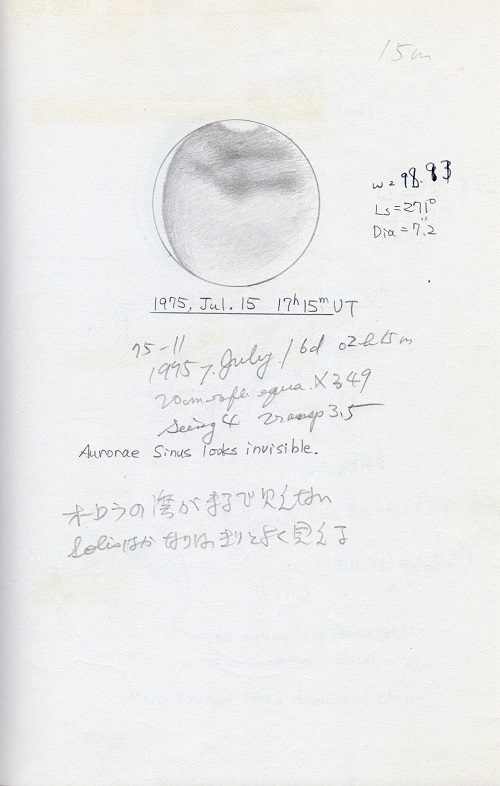 15m
ω=98.93
Ls=271°
Dia=7."2
1975, Jul. 15 17h15m UT
75-11
1975 7. July / 16d 02h15m
20cm refl. equa. ×349
Seeing 4 Transp 3.5
Aurorae Sinus looks invisible.
オーロラの湾がまるで見えない
Solisはかなりはっきりとよく見える